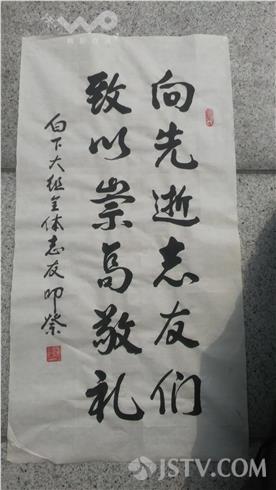 向先逝志友们
致以崇高敬礼
白下大组全体志友叩祭
JSTV.COM